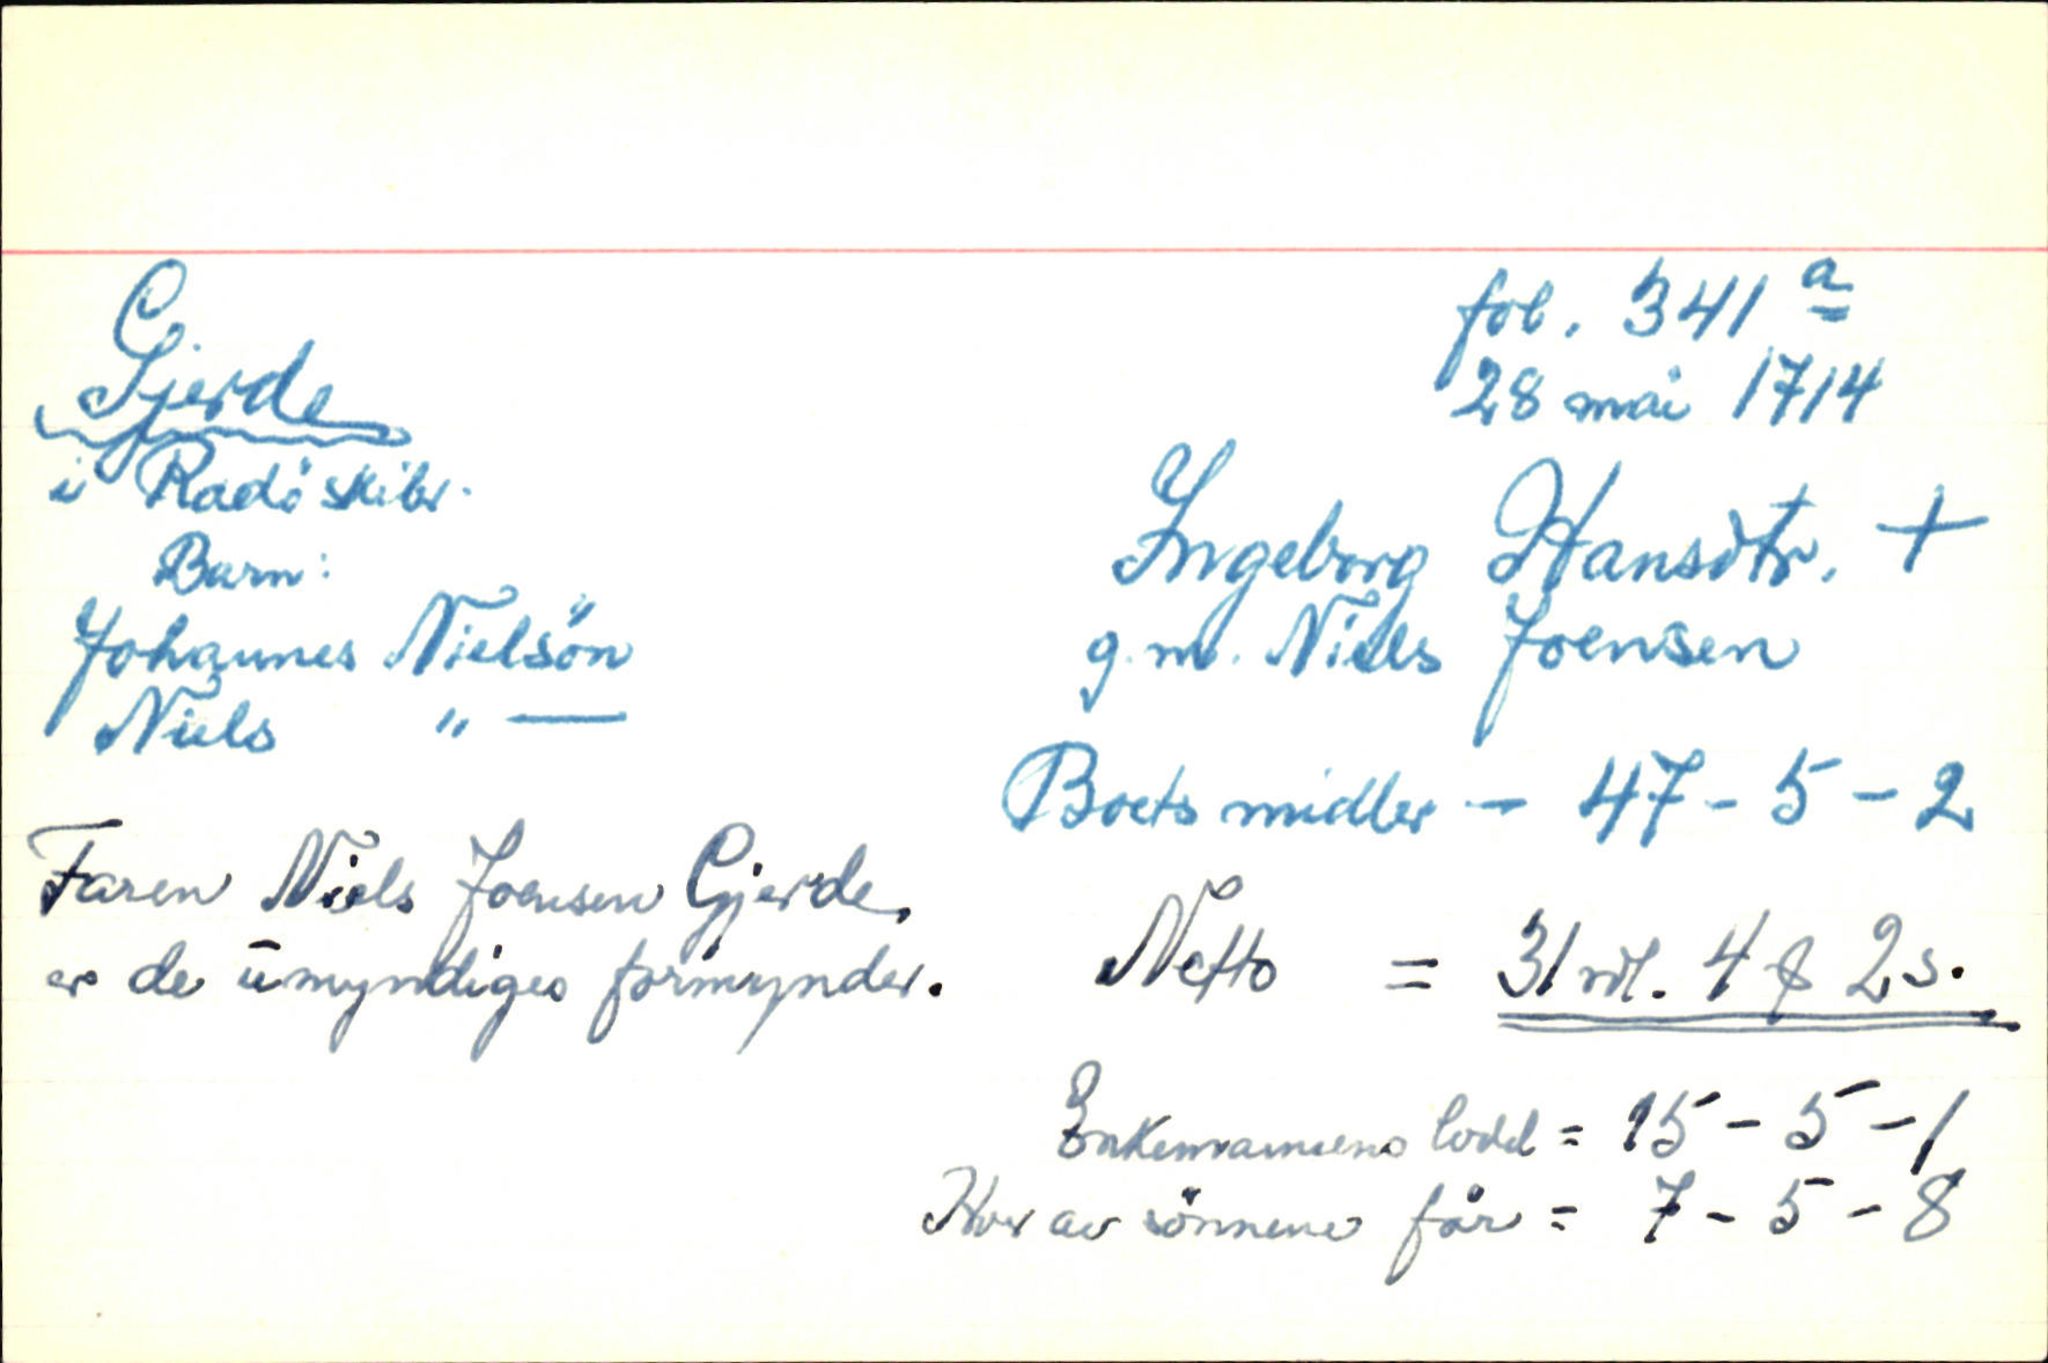 Gjerde
i Radö skibr.
Barn:
Johannes Nielsön
Niels " —
Faren Niels Joensen Gjerde,
er de umyndiges formynder.
fol. 341 a
28 mai 1714
Ingeborg Hansdtr. +
g.m. Niels Joensen
Boets midler — 47 - 5 - 2
Netto = 31 rdl. 4 ß 2 s.
Enkemannens lodd = 15 - 5 - 1
Hver av sönnene får = 7 - 5 - 8